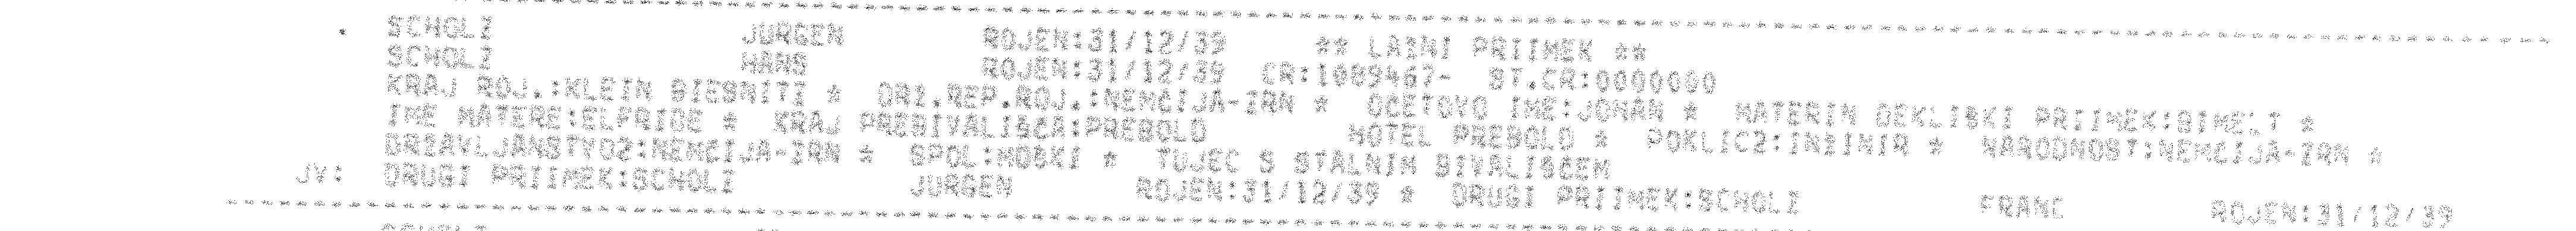 SCHOLZ JURGEN ROJEN:31/12/39 ** LAŽNI PRIIMEK **
SCHOLZ HANS ROJEN:31/12/39 CR:1089467- ST.CR:0000000
KRAJ ROJ.:KLEIN * DRŽ.REP.ROJ.:NEMČIJA-ZRN * OČETOVO IME:JOHAN * MATERIN DEKLIŠKI PRIIMEK:
IME MATERE:ELFRIDE * KRAJ PREBIVALIŠČA:PREBOLD HOTEL PREBOLD * POKLIC2:INŽINIR * NARODNOST:NEMČIJA-ZRN *
DRŽAVLJANSTVO2:NEMČIJA-ZRN * SPOL:MOŠKI * TUJEC S STALNIM BIVALIŠČEM
JV: DRUGI PRIIMEK:SCHOLZ JURGEN ROJEN:31/12/39 * DRUGI PRIIMEK:SCHOLZ FRANC ROJEN:31/12/39